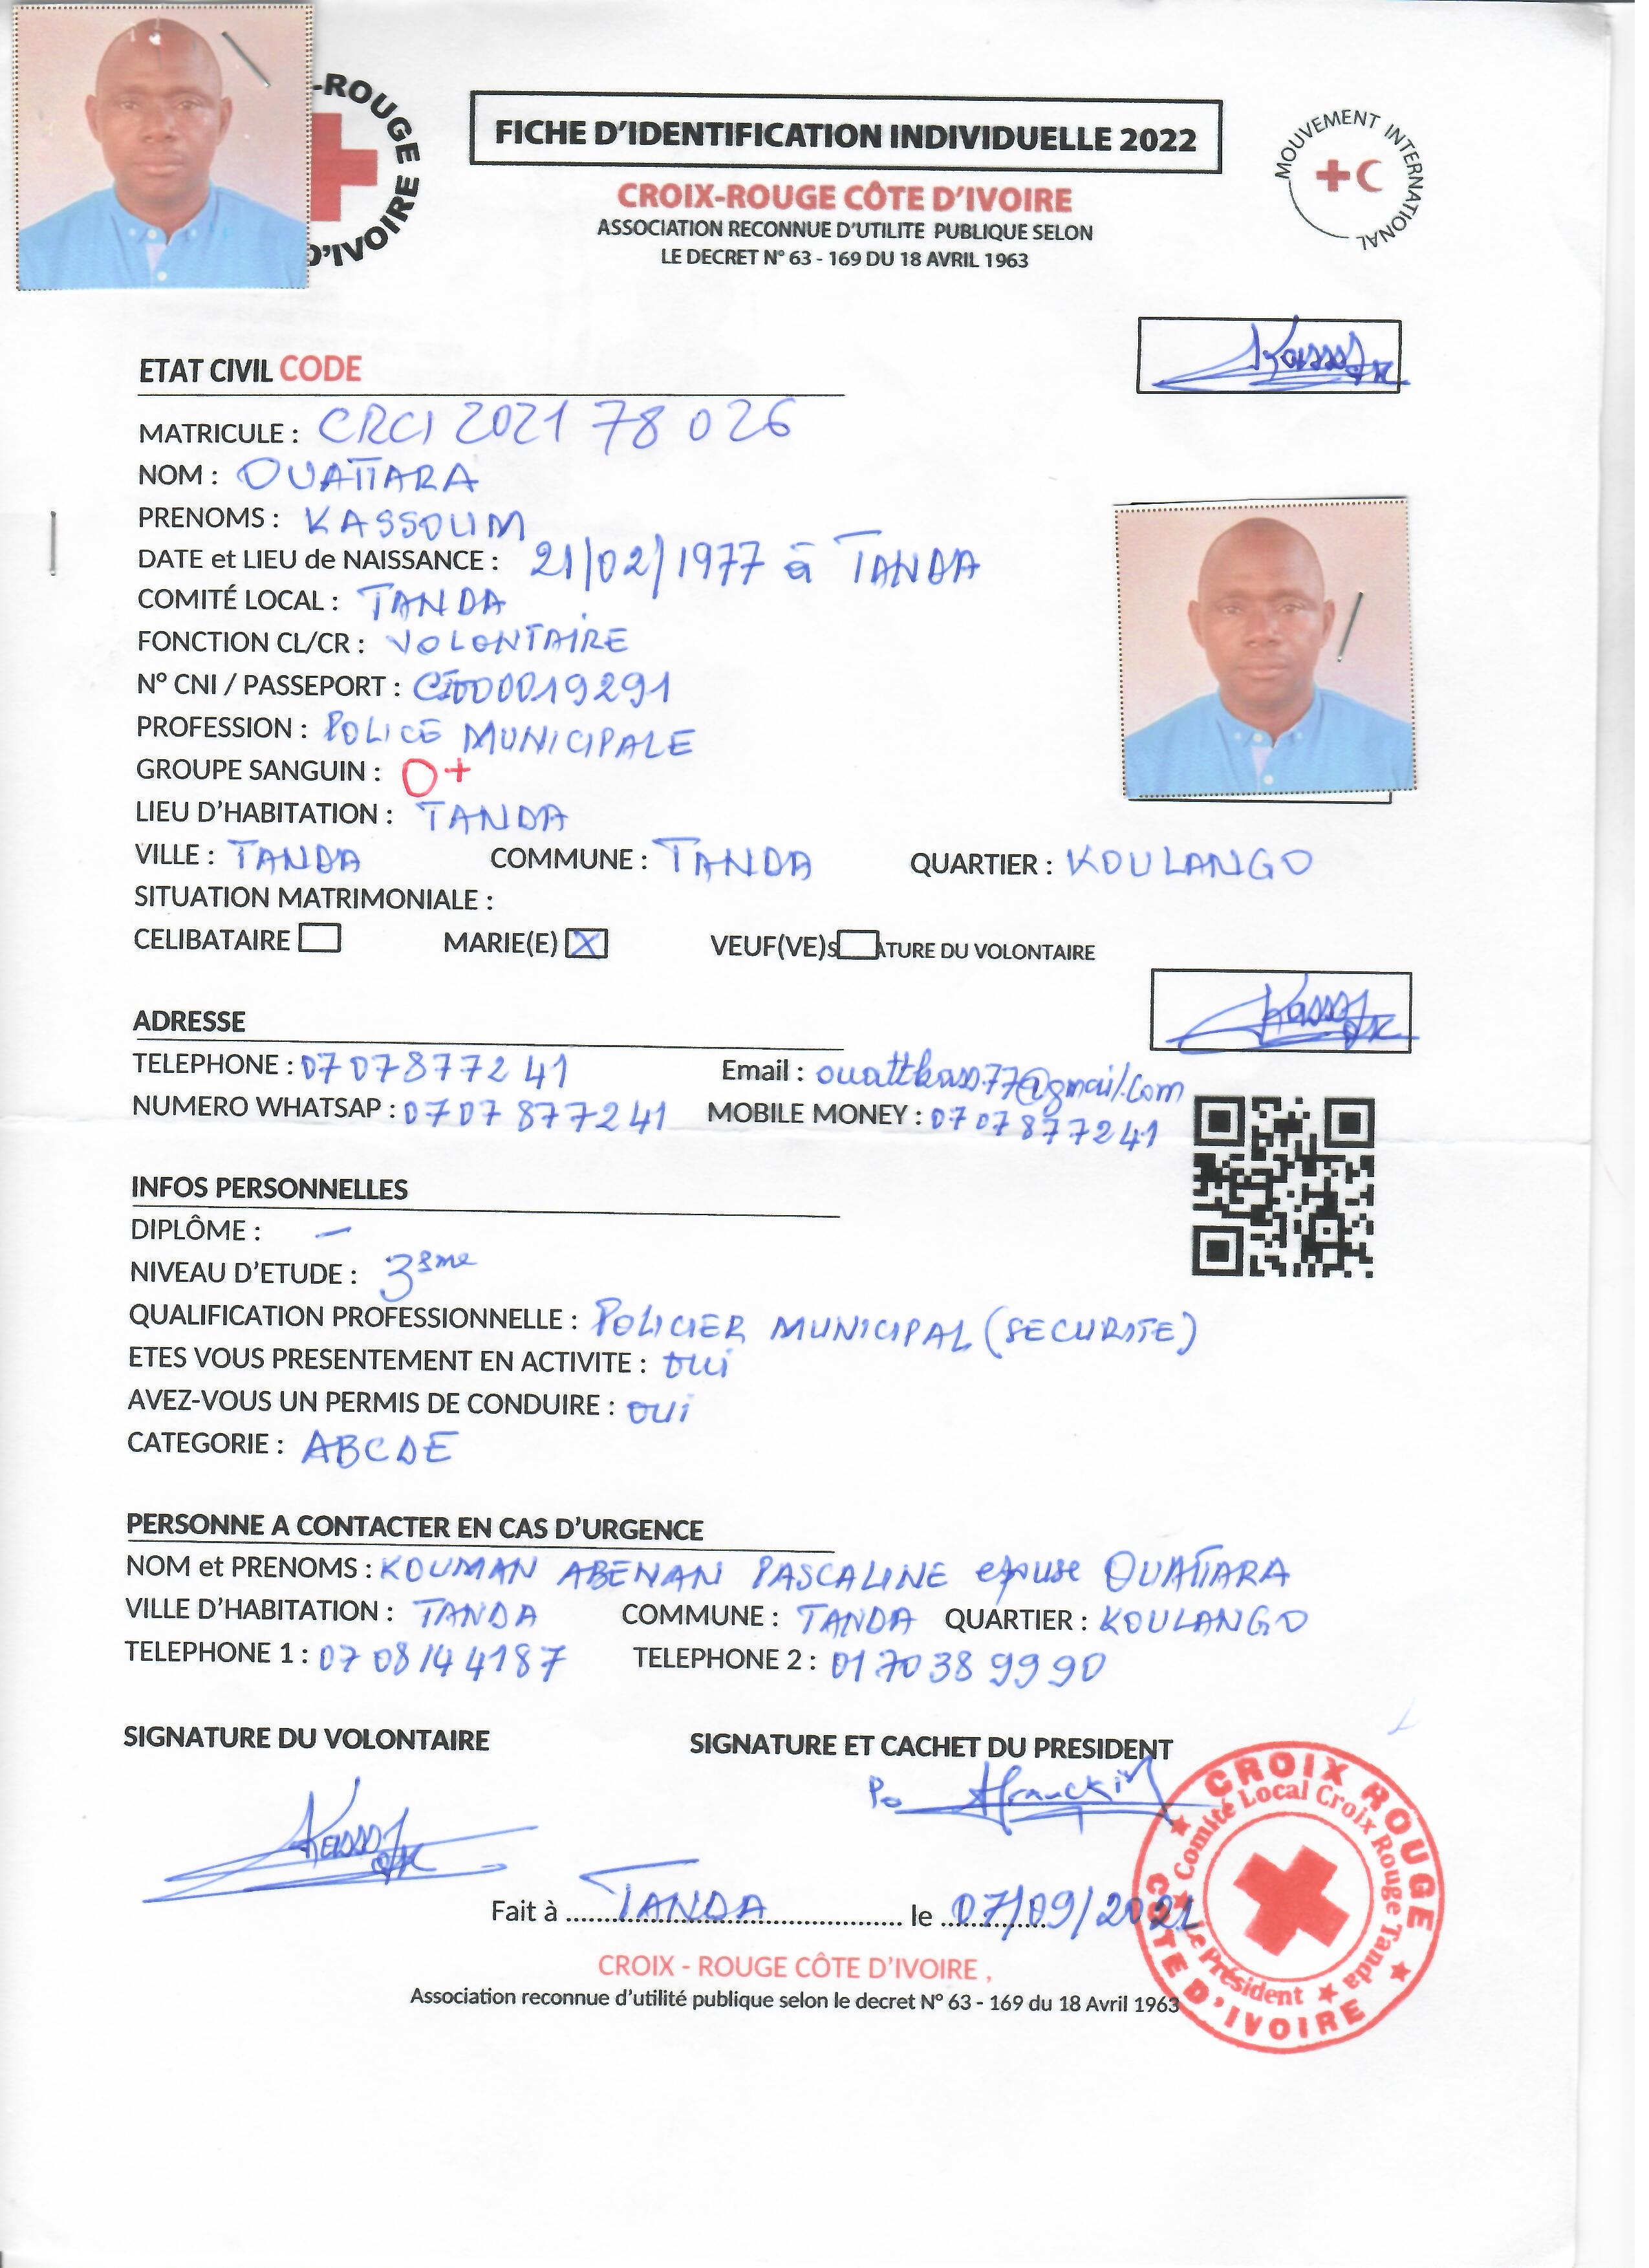 -ROUGE
D'IVOIRE
FICHE D'IDENTIFICATION INDIVIDUELLE 2022
MOUVEMENT INTERNATIONAL
CROIX-ROUGE CÔTE D'IVOIRE
ASSOCIATION RECONNUE D'UTILITE PUBLIQUE SELON
LE DECRET N° 63 - 169 DU 18 AVRIL 1963
ETAT CIVIL CODE
MATRICULE : CRCI 2021 78 026
NOM : OUATTARA
PRENOMS : KASSOUM
DATE et LIEU de NAISSANCE : 21/02/1977 à TANDA
COMITÉ LOCAL : TANDA
FONCTION CL/CR : VOLONTAIRE
N° CNI / PASSEPORT : CI000019291
PROFESSION : POLICE MUNICIPALE
GROUPE SANGUIN : O+
LIEU D'HABITATION : TANDA
VILLE : TANDA COMMUNE : TANDA QUARTIER : KOULANGO
SITUATION MATRIMONIALE :
CELIBATAIRE MARIE(E) X VEUF(VE)S ATURE DU VOLONTAIRE
ADRESSE
TELEPHONE : 07 07877241 Email : ouattkass77@gmail.com
NUMERO WHATSAP : 0707877241 MOBILE MONEY : 0707877241
INFOS PERSONNELLES
DIPLÔME : –
NIVEAU D'ETUDE : 3ème
QUALIFICATION PROFESSIONNELLE : POLICIER MUNICIPAL (SECURITE)
ETES VOUS PRESENTEMENT EN ACTIVITE : OUI
AVEZ-VOUS UN PERMIS DE CONDUIRE : OUI
CATEGORIE : ABCDE
PERSONNE A CONTACTER EN CAS D'URGENCE
NOM et PRENOMS : KOUMAN ABENAN PASCALINE epouse OUATTARA
VILLE D'HABITATION : TANDA COMMUNE : TANDA QUARTIER : KOULANGO
TELEPHONE 1 : 07 08144187 TELEPHONE 2 : 01 70 38 99 90
SIGNATURE DU VOLONTAIRE SIGNATURE ET CACHET DU PRESIDENT
Po
CROIX ROUGE CÔTE D'IVOIRE
Comité Local Croix Rouge Tanda
Le Président
Fait à TANDA le 07/09/2021
CROIX - ROUGE CÔTE D'IVOIRE ,
Association reconnue d'utilité publique selon le decret N° 63 - 169 du 18 Avril 1963